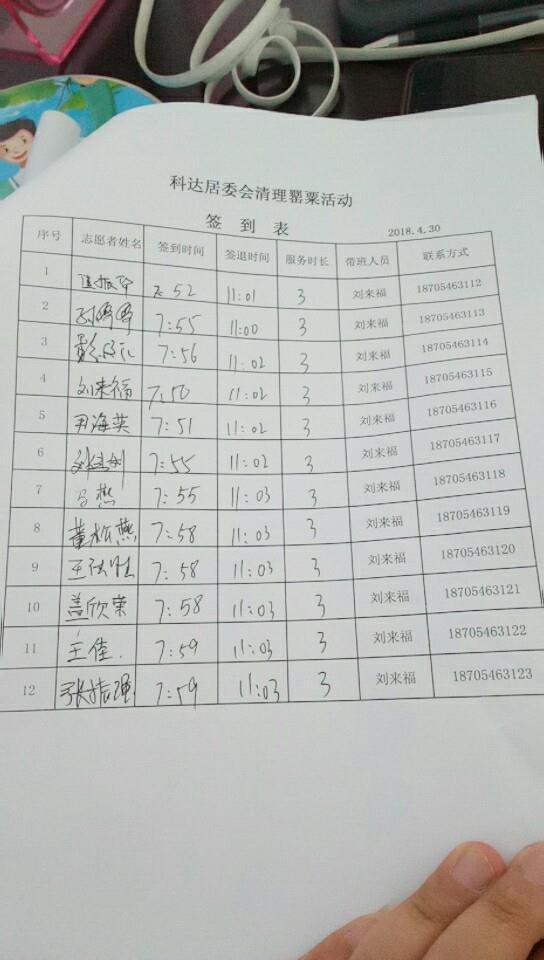 科达居委会清理罂粟活动
签 到 表
2018.4.30
序号 志愿者姓名 签到时间 签退时间 服务时长 带班人员 联系方式
1 7:52 11:01 3 刘来福 18705463112
2 7:55 11:00 3 刘来福 18705463113
3 7:56 11:02 3 刘来福 18705463114
4 刘来福 7:50 11:02 3 刘来福 18705463115
5 尹海英 7:51 11:02 3 刘来福 18705463116
6 7:55 11:02 3 刘来福 18705463117
7 马燕 7:55 11:03 3 刘来福 18705463118
8 董松燕 7:58 11:03 3 刘来福 18705463119
9 7:58 11:03 3 刘来福 18705463120
10 盖欣荣 7:58 11:03 3 刘来福 18705463121
11 王佳. 7:59 11:03 3 刘来福 18705463122
12 7:59 11:03 3 刘来福 18705463123